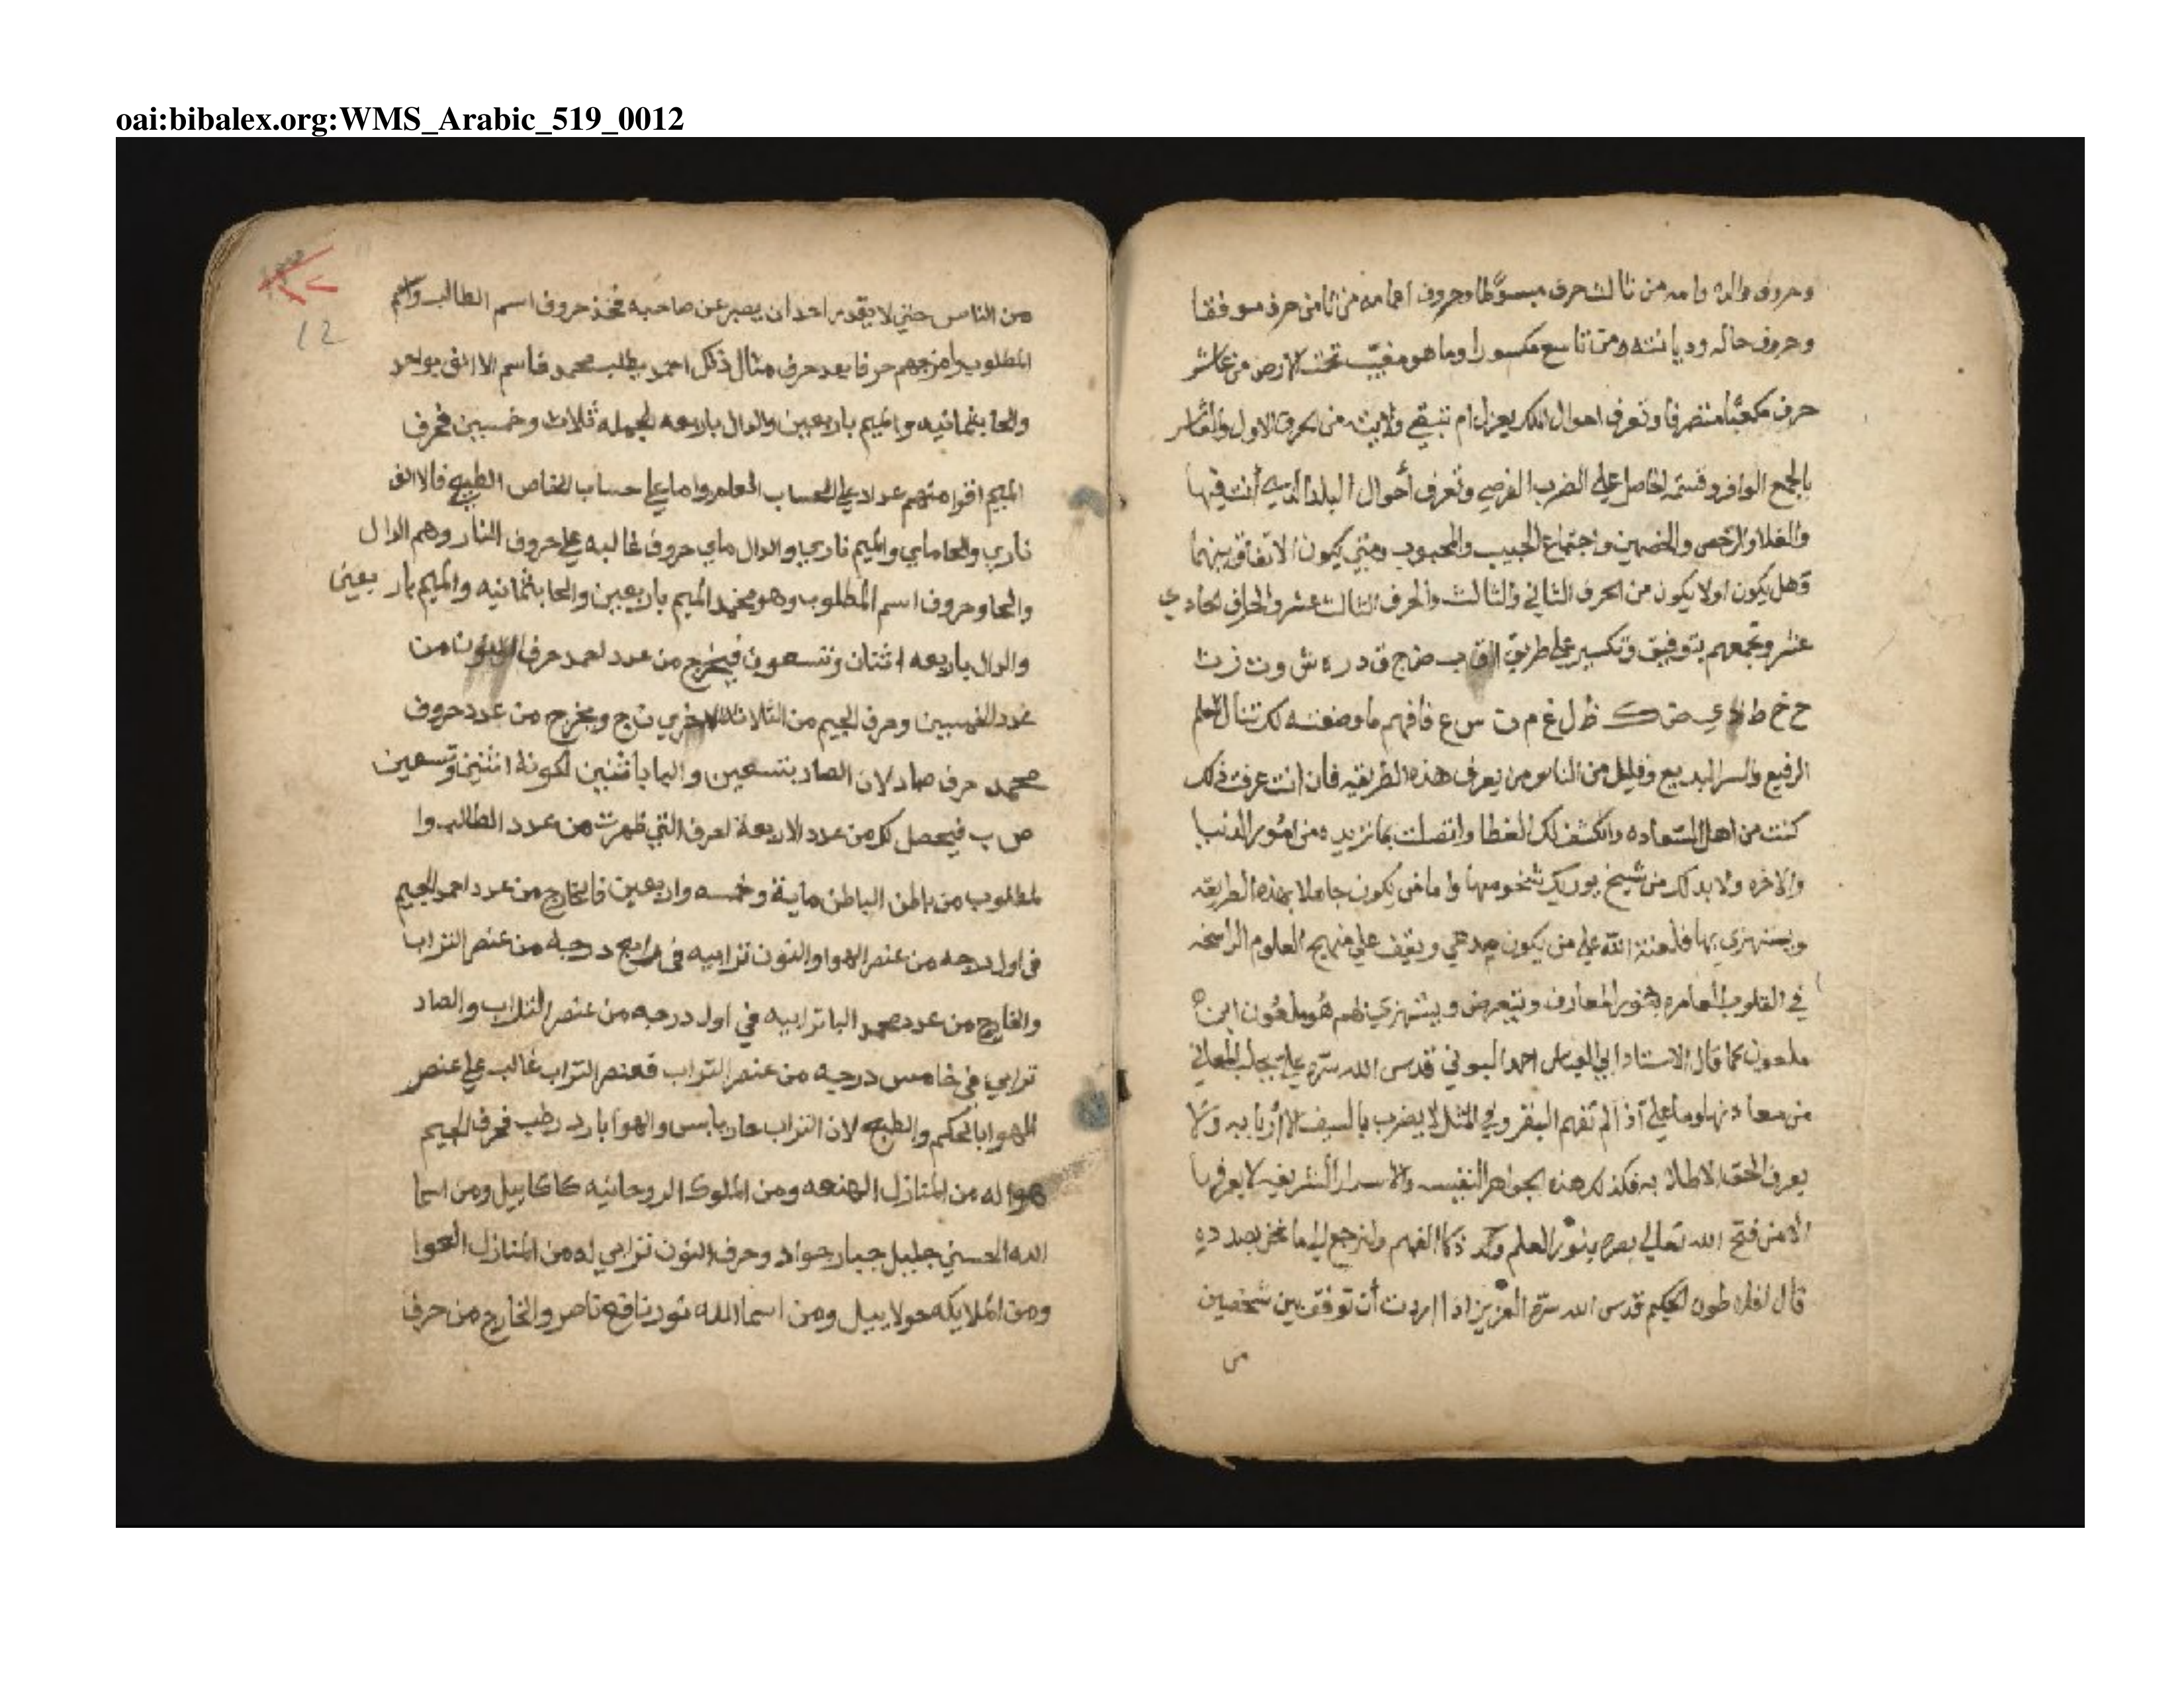 oai:bibalex.org:WMS_Arabic_519_0012
وحروف والده وامه من ثالث حرف مبسوطا وحروف من ثامن حرف موفقا
وحروف حاله وديانته من تاسع مكسورا وما هو مغيب تحت الارض من عاشر
حرف مكعبا منصرفا وتعرف احوال الملك يعزل ام يبقي من الحرف الاول والعاشر
بالجمع الوافر وقسمة الحاصل علي الضرب الفرضي وتعرف أحوال البلد الذي أنت فيها
والغلا والرخص والخصمين واجتماع الحبيب والمحبوب ومتي يكون الاتفاق بينهما
وهل يكون اولا يكون من الحرف الثاني والثالث والحرف الثالث عشر والحرف الحادي
عشر وتجمعهم بتوفيق وتكسير علي طريق ب ض ج ق د ر ه ش و ت ز ث
ح خ ط ي ض ك ظ ل غ م ن س ع فافهم ما وضعته لك تنال العلم
الرفيع والسر البديع وقليل من الناس من يعرف هذه الطريقه فان انت عرفت ذلك
كنت من اهل السعاده وانكشف لك الغطا واتصلت بما تريده من امور الدنيا
والاخره ولا بد لك من شيخ يوريك واما من يكون جاهلا بهذه الطريقه
ويستهزي بها فلعنة الله علي من يكون ويقف علي منهج العلوم الراسخه
في القلوب العامره المعارف ويتعرض ويستهزي هو ملعون ابن
ملعون كما قال الاستاد ابي العباس احمد البوني قدس الله سره علي المعاني
من معادنها وما علي أذا لم تفهم البقر وفي المثل لا يضرب بالسيف الا أربابه ولا
يعرف الحق الا طلابه فكذلك هذه الجواهر النفيسه والاسرار الشريفه لا يعرفها
الا من فتح الله تعالي بصره بنور العلم الفهم ولنرجع الي ما نحن بصدده
قال طون الحكيم قدس الله سره العزيز اذا اردت أن توفق بين شخصين
من
12
من الناس حتي لا يقدر احد ان يصبر عن صاحبه فخذ حروف اسم الطالب واسم
المطلوب وامزجهم حرفا بعد حرف مثال ذلك احمد يطلب محمد فاسم الا الف بواحد
والحا بثمانيه والميم باربعين والدال باربعه الجمله ثلاث وخمسين فحرف
الميم اقوا منهم عداد علي الحساب واما علي حساب الخاص الطبع فالالف
ناري والحا ماي والميم ناري والدال ماي حروف غالبه علي حروف النار وهم الدال
والحا وحروف اسم المطلوب وهو محمد الميم باربعين والحا بثمانيه والميم باربعين
والدال باربعه اثنان وتسعون فيخرج من عدد احمد حرف النون من
عدد الخمسين وحرف الجيم من الثلاثة الاخري ن ج ويخرج من عدد حروف
محمد حرف صاد لان الصاد بتسعين والبا باثنين لكونه اثنين وتسعين
ص ب فيحصل لك من عدد الاربعة احرف التي ظهرت من عدد الطالب وا
لمطلوب من باطن الباطن ماية وخمسه واربعين فالخارج من عدد احمد الجيم
في اول درجه من عنصر الهوا والنون ترابيه في رابع درجه من عنصر التراب
والخارج من عدد محمد البا ترابيه في اول درجه من عنصر التراب والصاد
ترابي في خامس درجه من عنصر التراب فعنصر التراب غالب علي عنصر
الهوا بالحكم والطبع لان التراب حار يابس والهوا بارد رطب فحرف الجيم
هوا له من المنازل الهنعه ومن الملوك الروحانيه كاكاييل ومن اسما
الله الحسني جليل جبار جواد وحرف النون ترابي له من المنازل العوا
ومن الملايكه حولاييل ومن اسما الله نور نافع ناصر والخارج من حرف